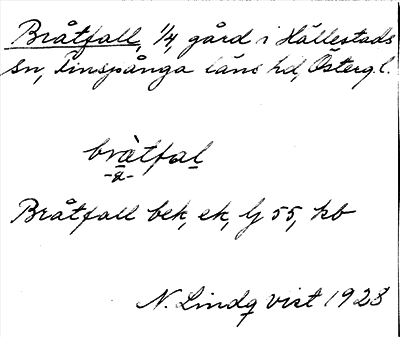 Bråtfall, 1/4, gård i Hällestads
sn, Finspånga läns hd, Österg.l.
bràtfal
-a-
Bråtfall bek, ek, lj 55, kb
N. Lindqvist 1923